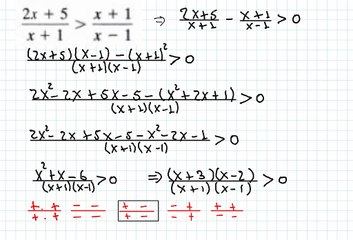 (2x + 5)/(x + 1) > (x + 1)/(x − 1) ⇒ (2x+5)/(x+1) − (x+1)/(x-1) > 0
((2x+5)(x-1) − (x+1)²)/((x+1)(x-1)) > 0
(2x² - 2x + 5x - 5 - (x² + 2x + 1))/((x+1)(x-1)) > 0
(2x² - 2x + 5x - 5 - x² - 2x - 1)/((x+1)(x-1)) > 0
(x² + x - 6)/((x+1)(x-1)) > 0 ⇒ ((x+3)(x-2))/((x+1)(x-1)) > 0
(+ . +)/(+ . +) (− −)/(− −) (+ −)/(+ −) (− +)/(− +) (+ −)/(− +)